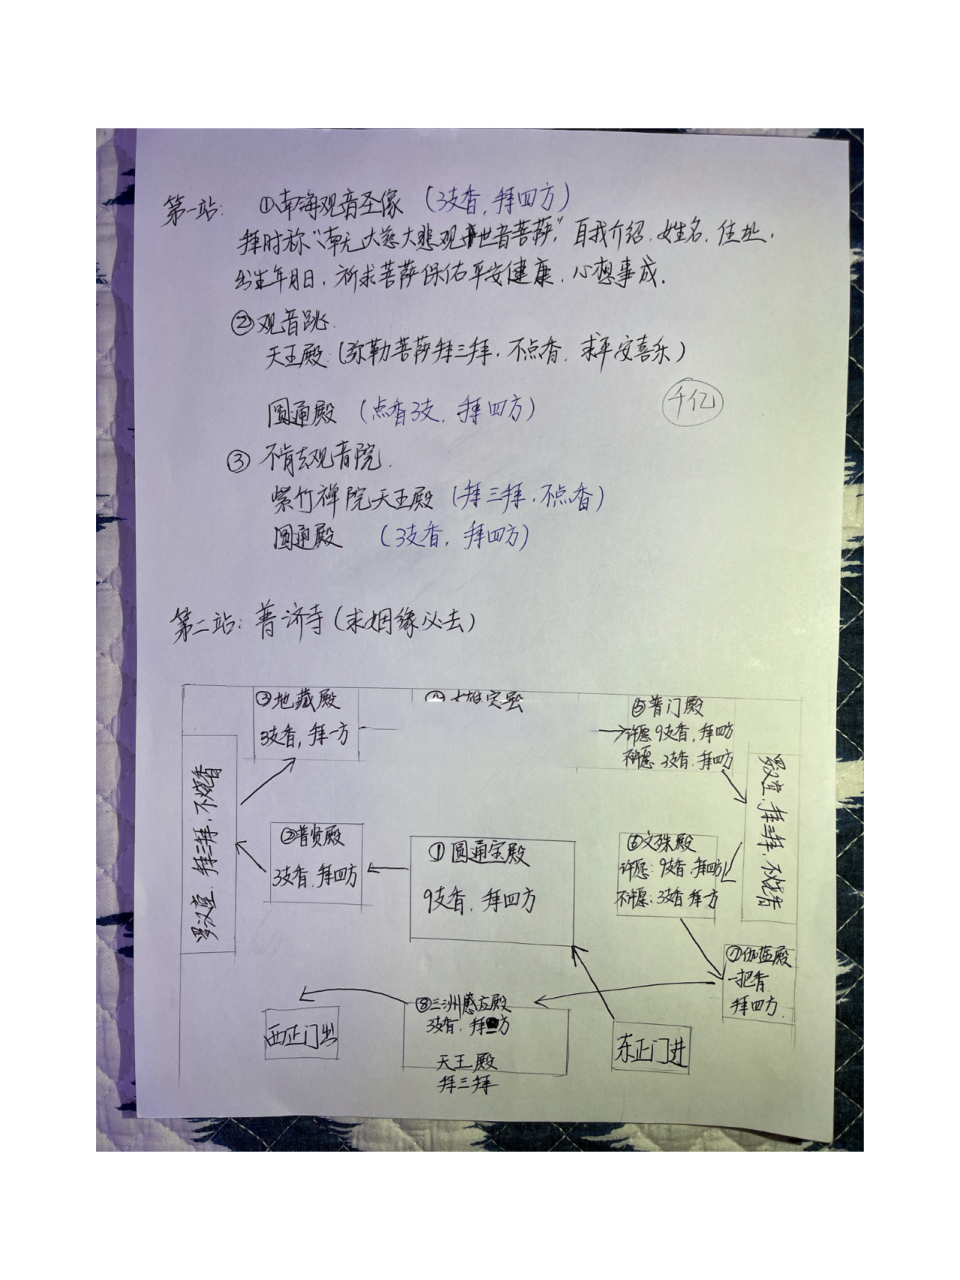 第一站: ①南海观音圣像 (3支香,拜四方)
拜时称“南无大慈大悲观世音菩萨,”自我介绍,姓名,住址,
出生年月日,祈求菩萨保佑平安健康,心想事成.
②观音跳.
天王殿:(弥勒菩萨拜三拜,不点香,求平安喜乐)
千亿
圆通殿 (点香3支,拜四方)
③ 不肯去观音院.
紫竹禅院天王殿 (拜三拜,不点香)
圆通殿 (3支香,拜四方)
第二站: 普济寺(求姻缘必去)
③地藏殿
3支香,拜一方
⑤普门殿
许愿 9支香,拜四方
不许愿 3支香,拜四方
罗汉堂,拜三拜,不烧香
罗汉堂,拜三拜,不烧香
②普贤殿
3支香,拜四方
①圆通宝殿
9支香,拜四方
⑥文殊殿
许愿:9支香,拜四方
不许愿:3支香 拜一方
⑦伽蓝殿
一把香
拜四方.
⑧三洲感应殿
3支香,拜 方
天王殿
拜三拜
西正门出
东正门进